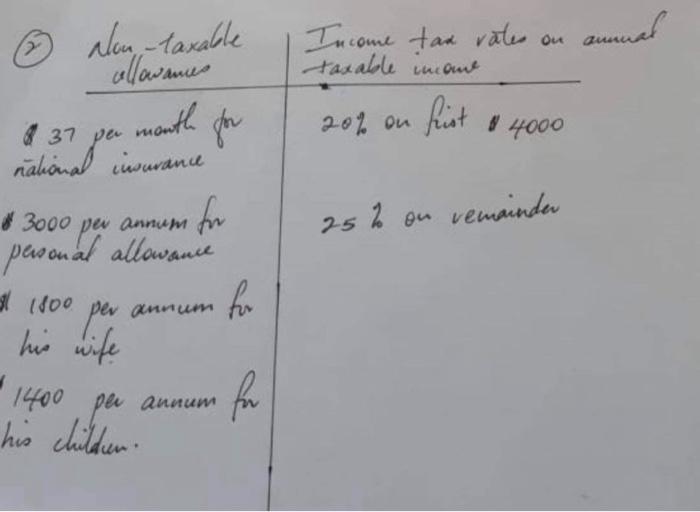 ② Non-taxable
allowances
Income tax rates on annual
taxable income
$ 37 per month for
national insurance
20% on first $ 4000
$ 3000 per annum for
personal allowance
25% on remainder
$ 1800 per annum for
his wife
1400 per annum for
his children.